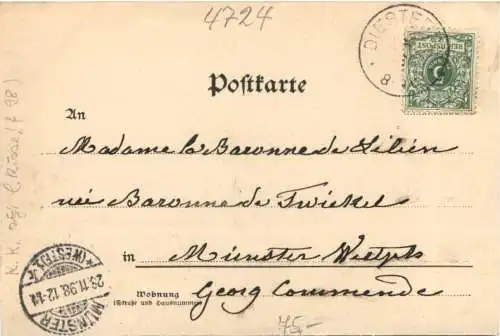 4724
DIESTE
8
REICHSPOST
5
Postkarte
An
Madame la Baronne de Lilien
née Baronne de Twickel
in Münster Westph
Wohnung
(Straße und Hausnummer)
Georg Commende
MÜNSTER (WESTF.)
23.11.98. 12-1
75,-